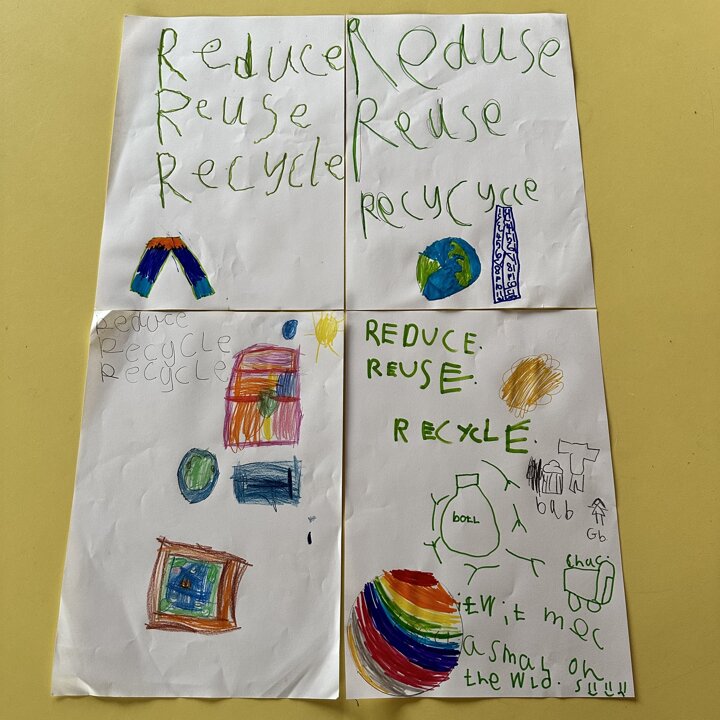 Reduce
Reuse
Recycle
Reduse
Reuse
Recycycle
Reduce
Recycle
Recycle
REDUCE.
REUSE.
RECYCLE.
bab
Gb
botl
chac.
it mec
a smal on
the wld.